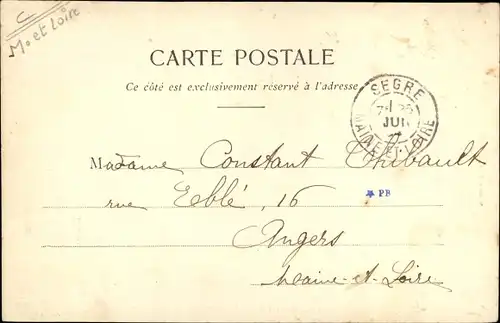 C
M. et Loire
CARTE POSTALE
Ce côté est exclusivement réservé à l'adresse
SEGRÉ
JUI
MAINE-ET-LOIRE
Madame Constant Thibault
rue Eblé, 16
PB
Angers
Maine-et-Loire